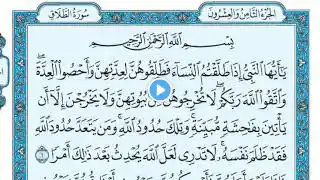 الجزء الثامن والعشرون
سورة الطلاق
بِسْمِ اللَّهِ الرَّحْمَٰنِ الرَّحِيمِ
يَا أَيُّهَا النَّبِيُّ إِذَا طَلَّقْتُمُ النِّسَاءَ فَطَلِّقُوهُنَّ لِعِدَّتِهِنَّ وَأَحْصُوا الْعِدَّةَ
وَاتَّقُوا اللَّهَ رَبَّكُمْ لَا تُخْرِجُوهُنَّ مِنْ بُيُوتِهِنَّ وَلَا يَخْرُجْنَ إِلَّا أَنْ
يَأْتِينَ بِفَاحِشَةٍ مُبَيِّنَةٍ وَتِلْكَ حُدُودُ اللَّهِ وَمَنْ يَتَعَدَّ حُدُودَ اللَّهِ
فَقَدْ ظَلَمَ نَفْسَهُ لَا تَدْرِي لَعَلَّ اللَّهَ يُحْدِثُ بَعْدَ ذَٰلِكَ أَمْرًا